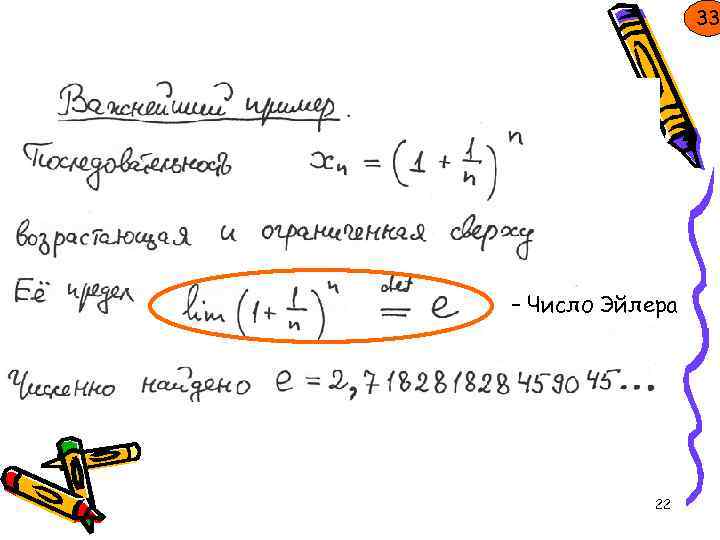 33
Важнейший пример.
Последовательность xₙ = (1 + 1/n)ⁿ
возрастающая и ограниченная сверху
Её предел lim (1 + 1/n)ⁿ def = e – Число Эйлера
Численно найдено e = 2,718281828459045...
22